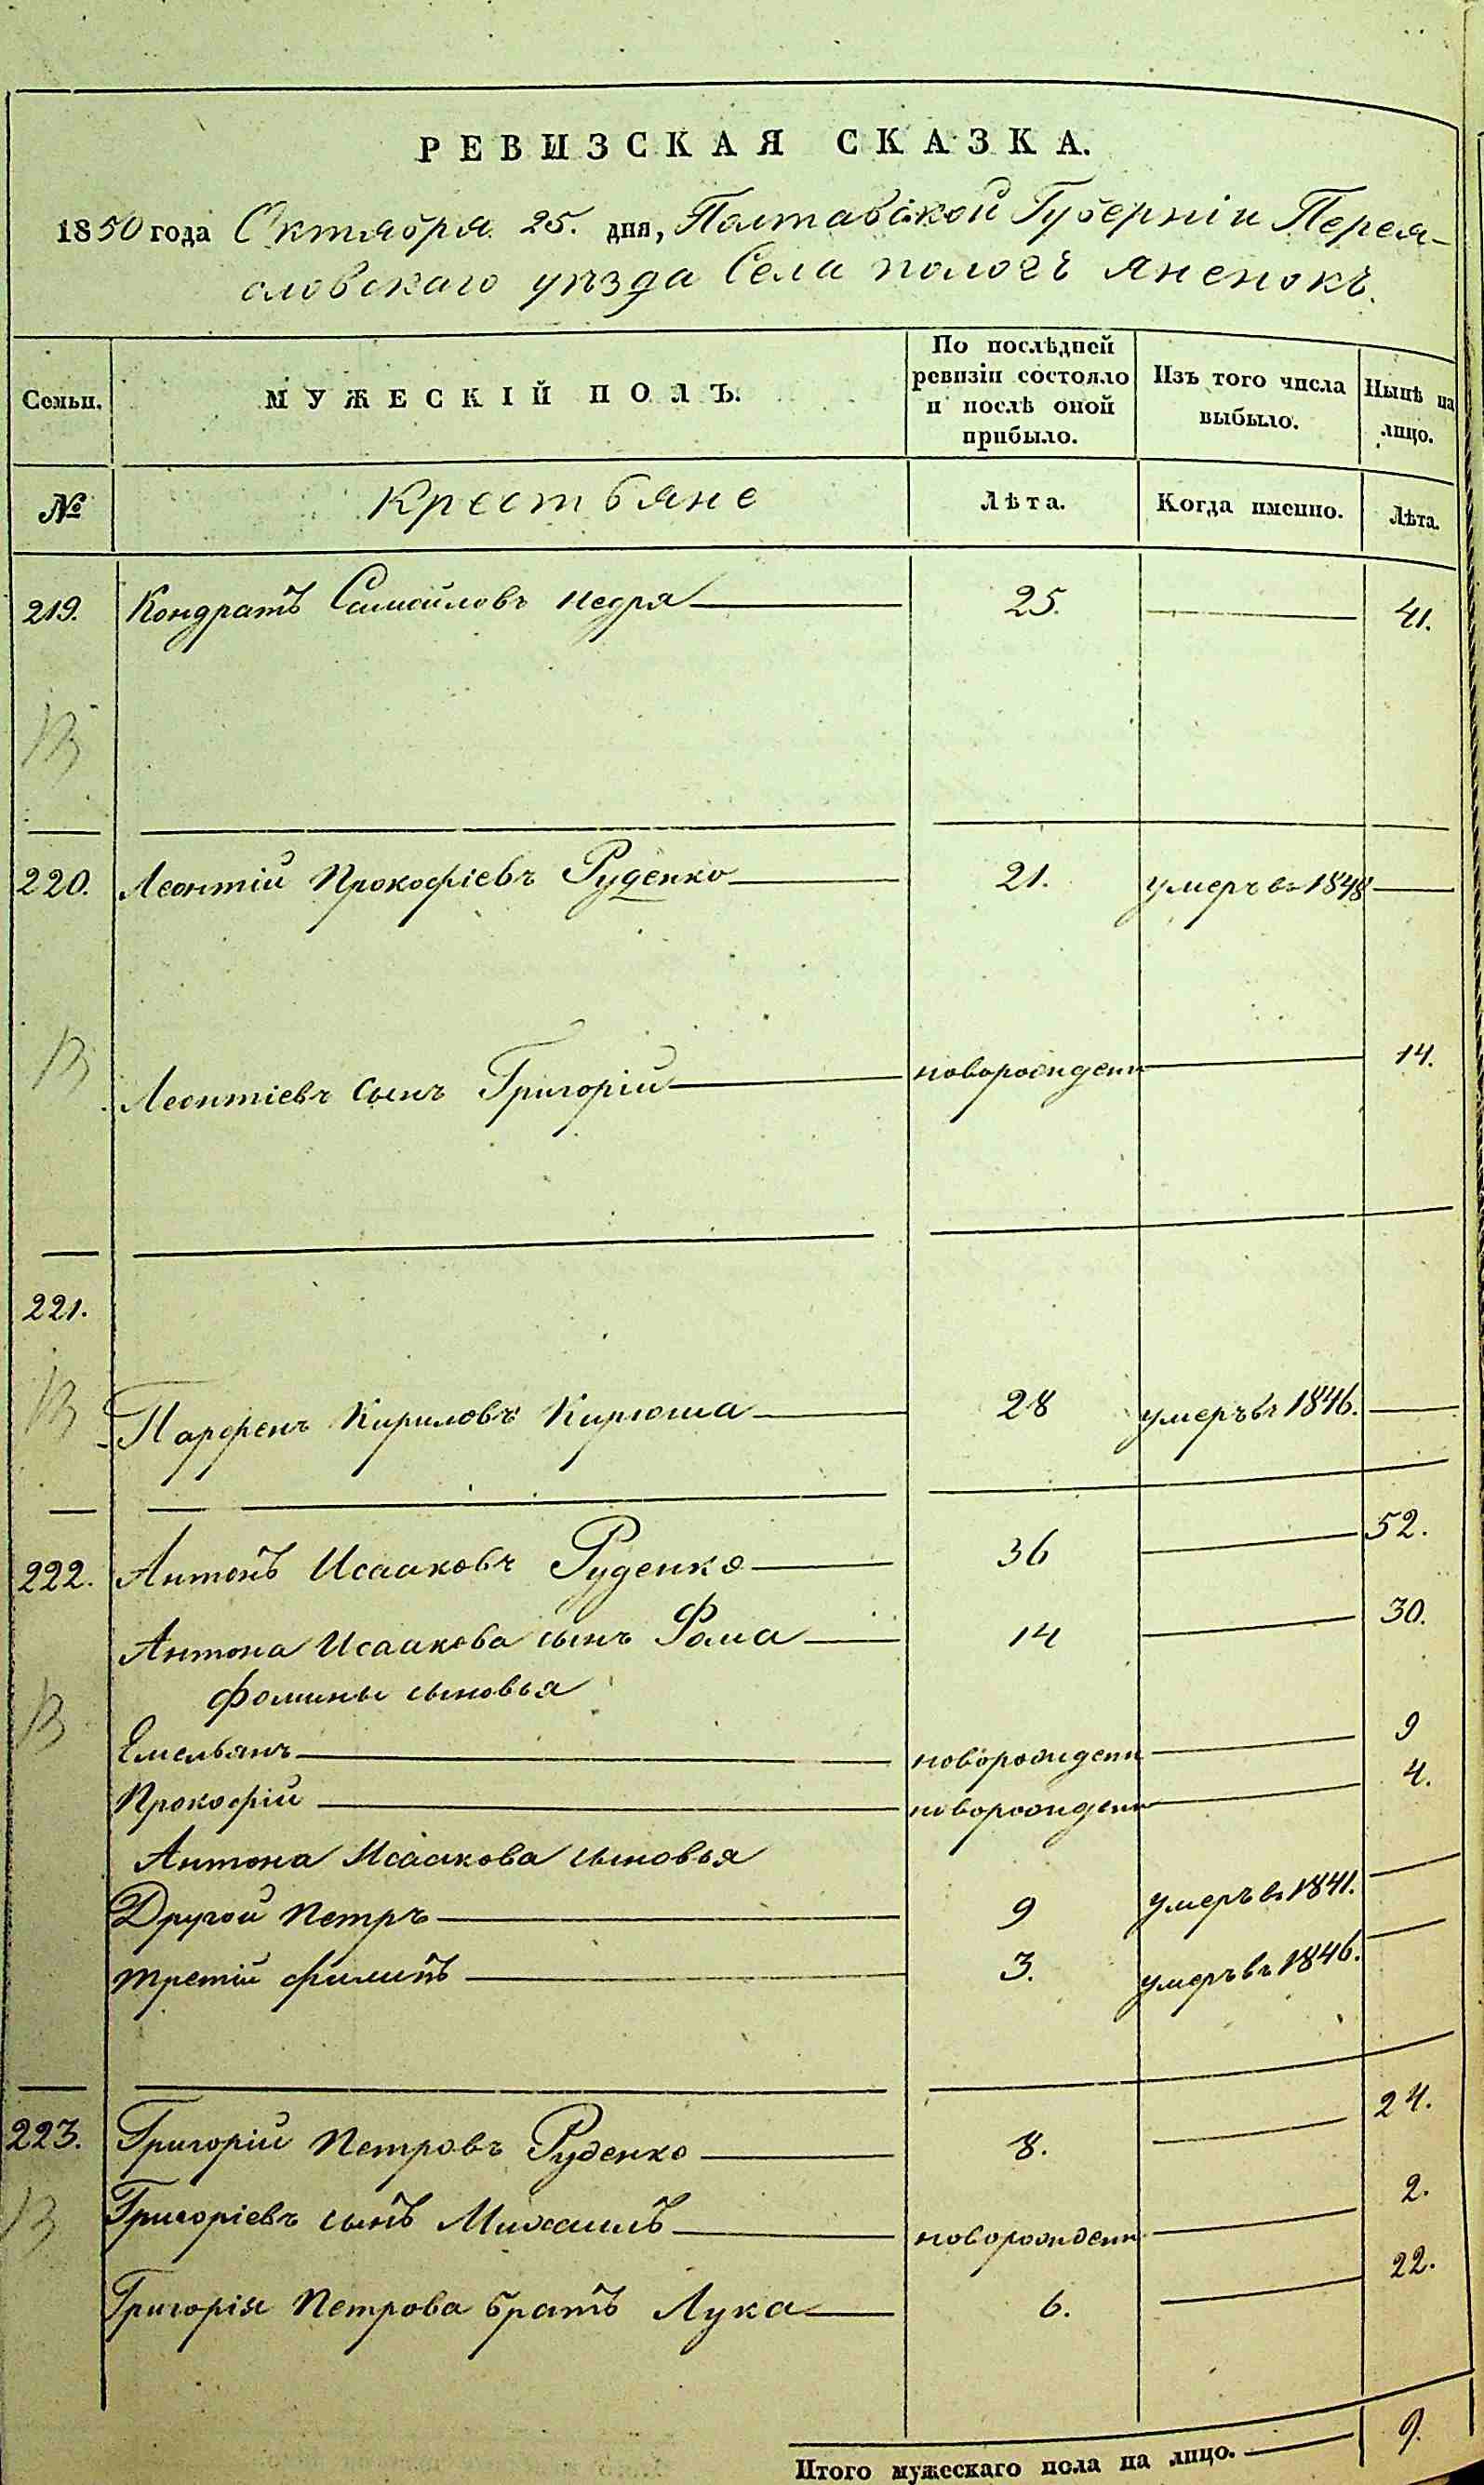 РЕВИЗСКАЯ СКАЗКА.
1850 года Октября 25. дня, Полтавской Губерніи Перея-
словскаго уѣзда Села пологъ яненокъ.
Семьи.
МУЖЕСКІЙ ПОЛЪ.
По послѣдней ревизіи состояло и послѣ оной прибыло.
Изъ того числа выбыло.
Нынѣ на лицо.
№
Крестьяне
Лѣта.
Когда именно.
Лѣта.
219. Кондратъ Самойловъ Недря 25. 41.
220. Леонтій Прокофіевъ Руденко 21. умеръ въ 1848
Леонтіевъ сынъ Григорій новорожден 14.
221.
Парфенъ Кириловъ Кирюша 28 умеръ въ 1846.
222. Антонъ Исааковъ Руденко 36 52.
Антона Исаакова сынъ Фома 14 30.
Фомины сыновья
Емельянъ новорожден 9
Прокофій новорожден 4.
Антона Исаакова сыновья
Другой Петръ 9 умеръ въ 1841.
третій филипъ 3. умеръ въ 1846.
223. Григорій Петровъ Руденко 8. 24.
Григоріевъ сынъ Михаилъ новорожден 2.
Григорія Петрова братъ Лука 6. 22.
Итого мужескаго пола на лицо. 9.